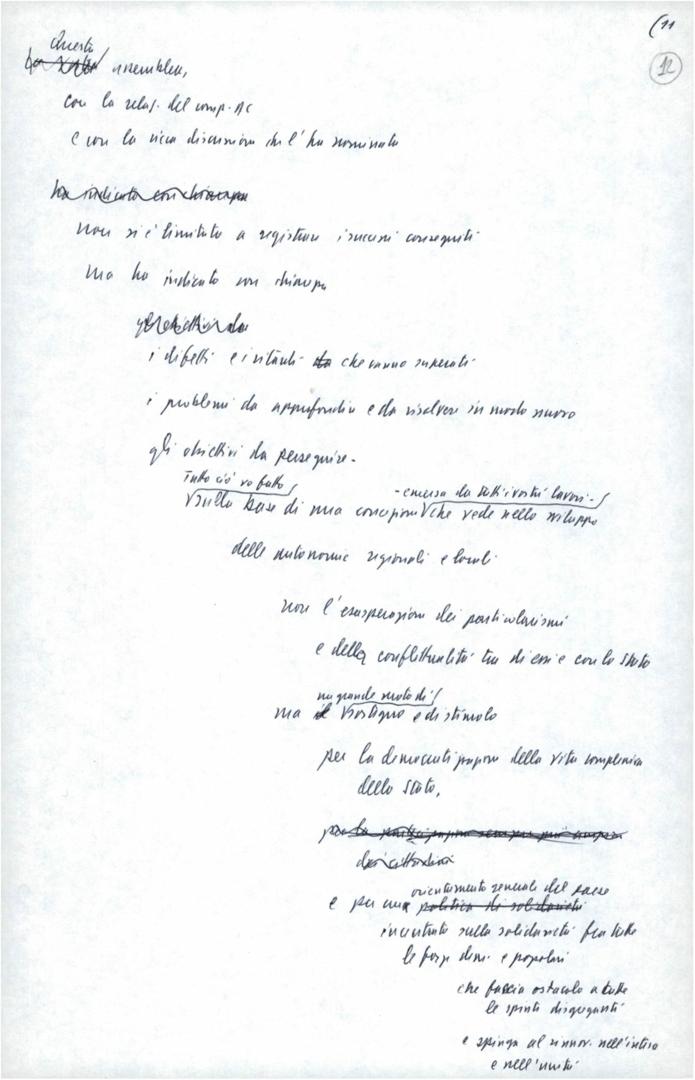 (11
12
Questa
assemblea,
con la relaz. del comp. Ac
e con la ricca discussione che l'ha
ha indicato con chiarezza
non si è limitata a registrare i successi conseguiti
ma ha indicato con chiarezza
gli obiettivi da
i difetti e i ritardi che vanno superati
i problemi da approfondire e da risolvere in modo nuovo
gli obiettivi da perseguire -
Tutto ciò va fatto
- emersa da tutti i vostri lavori -
sulla base di una concezione che vede nello sviluppo
delle autonomie regionali e locali
non l'esasperazione dei particolarismi
e della conflittualità tra di essi e con lo Stato
un grande moto di
ma il sostegno e di stimolo
per la democratizzazione della vita complessiva
dello Stato,
per la partecipazione sempre più ampia
dei cittadini
orientamento generale del paese
e per una politica di solidarietà
incentrato sulla solidarietà fra tutte
le forze dem. e popolari
che faccia ostacolo a tutte
le spinte disgreganti
e spinga al rinnov. nell'intesa
e nell'unità